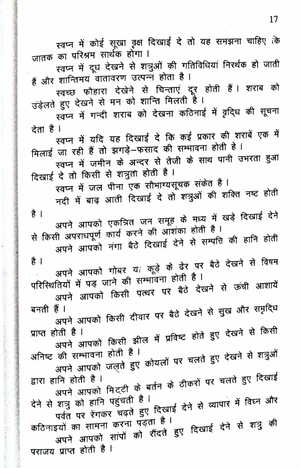 17
स्वप्न में कोई सूखा वृक्ष दिखाई दे तो यह समझना चाहिए कि
जातक का परिश्रम सार्थक होगा ।
स्वप्न में दूध देखने से शत्रुओं की गतिविधियां निरर्थक हो जाती
हैं और शान्तिमय वातावरण उत्पन्न होता है ।
स्वच्छ फोहारा देखेने से चिन्ताएं दूर होती हैं । शराब को
उड़ेलते हुए देखने से मन को शान्ति मिलती है ।
स्वप्न में गन्दी शराब को देखना कठिनाई में वृद्धि की सूचना
देता है ।
स्वप्न में यदि यह दिखाई दे कि कई प्रकार की शराबें एक में
मिलाई जा रही हैं तो झगड़े–फसाद की सम्भावना होती है ।
स्वप्न में जमीन के अन्दर से तेजी के साथ पानी उभरता हुआ
दिखाई दे तो किसी से शत्रुता होती है ।
स्वप्न में जल पीना एक सौभाग्यसूचक संकेत है ।
नदी में बाढ़ आती दिखाई दे तो शत्रुओं की शक्ति नष्ट होती
है ।
अपने आपको एकत्रित जन समूह के मध्य में खड़े दिखाई देने
से किसी अपराधपूर्ण कार्य करने की आशंका होती है ।
अपने आपको नंगा बैठे दिखाई देने से सम्पत्ति की हानि होती
है ।
अपने आपको गोबर या कूड़े के ढेर पर बैठे देखने से विषम
परिस्थितियों में पड़ जाने की सम्भावना होती है ।
अपने आपको किसी पत्थर पर बैठे देखने से ऊंची आशायें
बनती हैं ।
अपने आपको किसी दीवार पर बैठे देखने से सुख और समृद्धि
प्राप्त होती है ।
अपने आपको किसी झील में प्रविष्ट होते हुए देखने से किसी
अनिष्ट की सम्भावना होती है ।
अपने आपको जलते हुए कोयलों पर चलते हुए देखने से शत्रुओं
द्वारा हानि होती है ।
अपने आपको मिट्टी के बर्तन के ठीकरों पर चलते हुए दिखाई
देने से शत्रु को हानि पहुंचती है ।
पर्वत पर रेंगकर चढ़ते हुए दिखाई देने से व्यापार में विघ्न और
कठिनाइयों का सामना करना पड़ता है ।
अपने आपको सांपों को रौंदते हुए दिखाई देने से शत्रु की
पराजय प्राप्त होती है ।